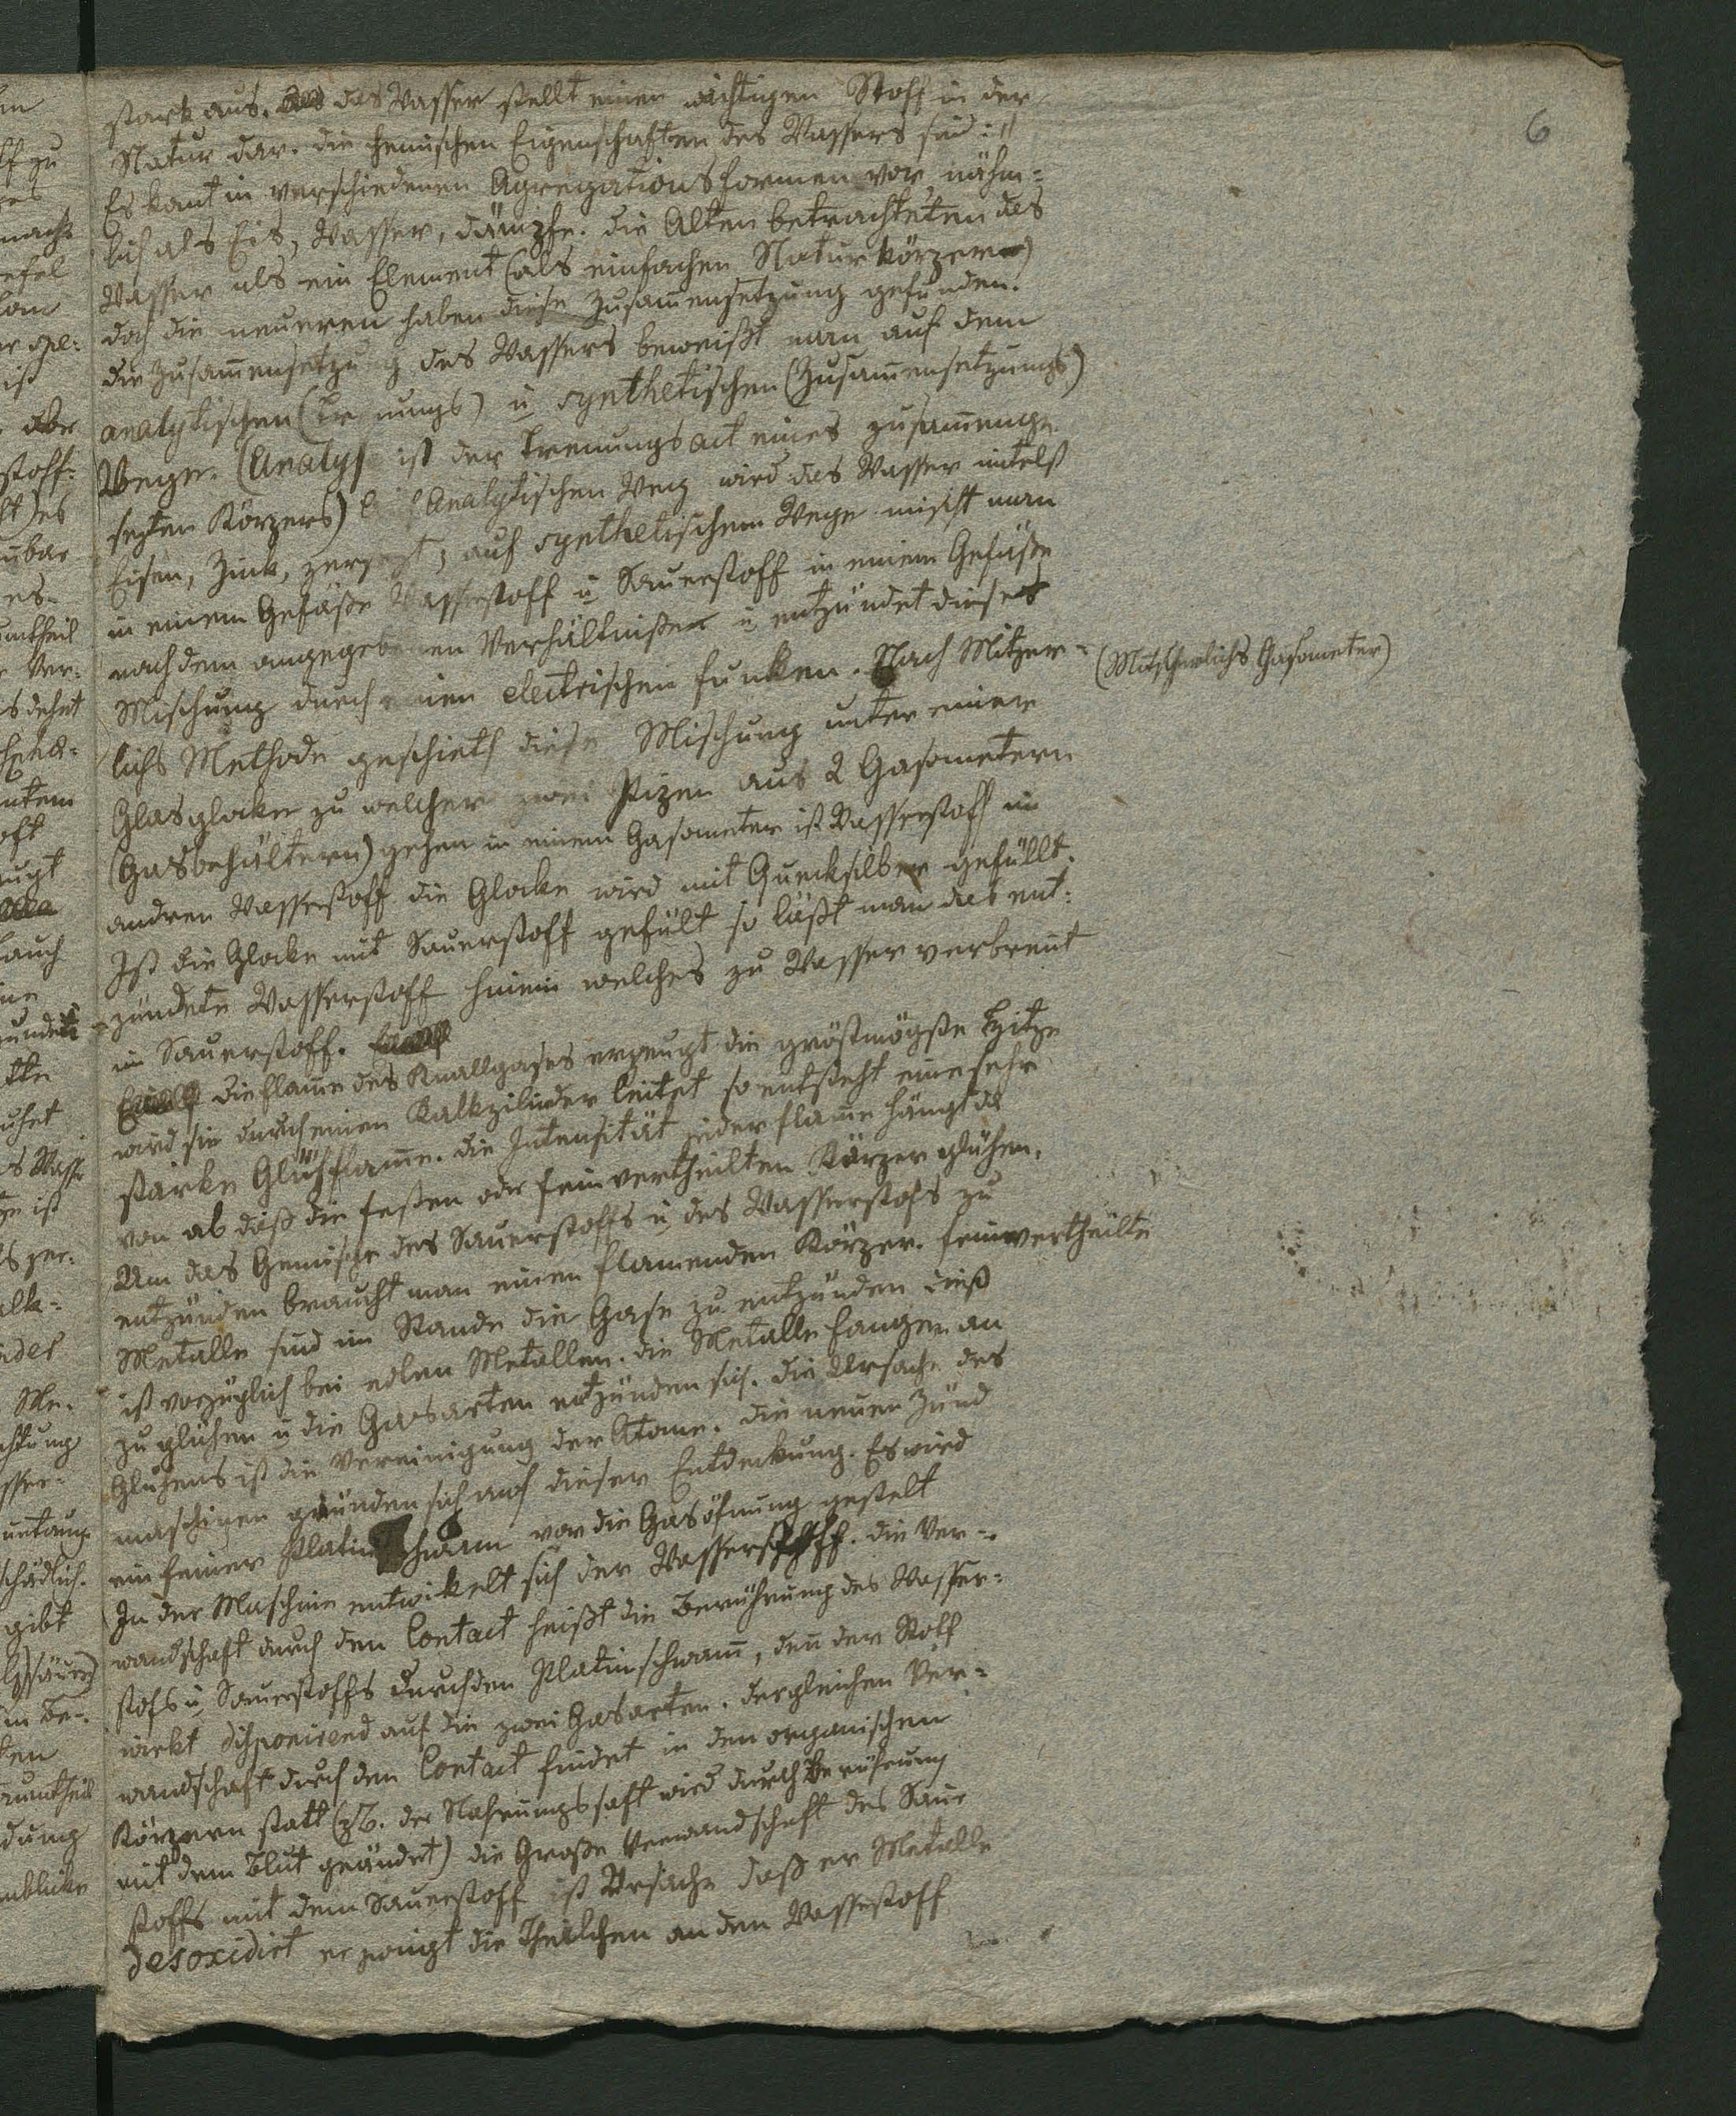 6
stark aus. das Wasser stellt einen wichtigen Stoff in der
Natur dar. die chemischen Eigenschaften des Wassers sind:
Es komt in verschiedenen Agregationsformen vor nähm=
lich als Eis, Wasser, dämpfe. die Alten betrachteten das
Wasser als ein Element (als einfachen Naturkörper)
doch die neueren haben diese Zusam̄ensetzung gefunden.
die Zusam̄ensetzu g des Wassers beweißt man auf dem
analytischen (Tre nungs) u synthetischen (Zusam̄ensetzungs)
Wege. (Analys ist der Trennungsact eines zusam̄enge
sezten Körpers) Analytischen Weg wird das Wasser mitelst
Eisen, Zink, zersezt, auf synthetischem Wege mischt man
in einem Gefäße Wasserstoff u Sauerstoff in einem Gefäße
nach dem angegebenen Verhältnißen u entzündet dieses
Mischung durch einen electrischen funken. Nach Mitzer=
(Mitscherlichs Gasometer)
lichs Methode geschieth diese Mischung unter einer
Glasglocke zu welcher zwei Spizen aus 2 Gasometern
(Gasbehältern) gehen in einem Gasometer ist Wasserstoff im
andren Wasserstoff die Glocke wird mit Quecksilber gefüllt.
Ist die Glocke mit Sauerstoff gefült so läßt man das ent=
zündete Wasserstoff hinein welches zu Wasser verbrent
im Sauerstoff.
die flam̄e des Knallgases erzeugt die gröstmögste Hitze
wird sie durch einen Kalkzilinder leitet so entsteht eine sehr
starke Glühflam̄e. die Intensität jeder flam̄e hängt da
von ab daß die festen oder fein vertheilten Körper glühen.
Um das Gemische des Sauerstoffs u des Wasserstofs zu
entzünden braucht man einen flamenden Körper. feinvertheilte
Metalle sind im Stande die Gase zu entzünden dieß
ist vorzüglich bei edlen Metallen. die Metalle fangen an
zu glühen u die Gasarten entzünden sich. die Ursache des
Glühens ist die Vereinigung der Atome. die neuen Zünd
maschinen gründen sich auf dieser Entdeckung. Es wird
ein feiner Platinschwam vor die Gasöfnung gestelt
In der Maschine entwickelt sich der Wasserstoff. die Ver=
wandschaft durch den Contact heißt die Berührung des Wasser=
stofs u Sauerstoffs durch den Platinschwam̄, den̄ der Stoff
wirkt disponirend auf die zwei Gasarten. dergleichen Ver=
wandschaft durch den Contact findet in den organischen
Körpern statt (zB. der Nahrungssaft wird durch Berührung
mit dem Blut geändet) die Große Verwandschaft des Saur
stoffs mit dem Sauerstoff ist Ursache daß er Metalle
desoxidirt er die Theilchen an den Wasserstoff